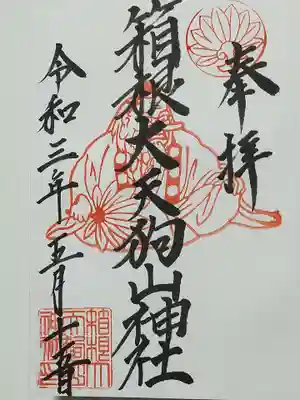 奉拝
箱根大天狗山神社
令和三年五月十五日